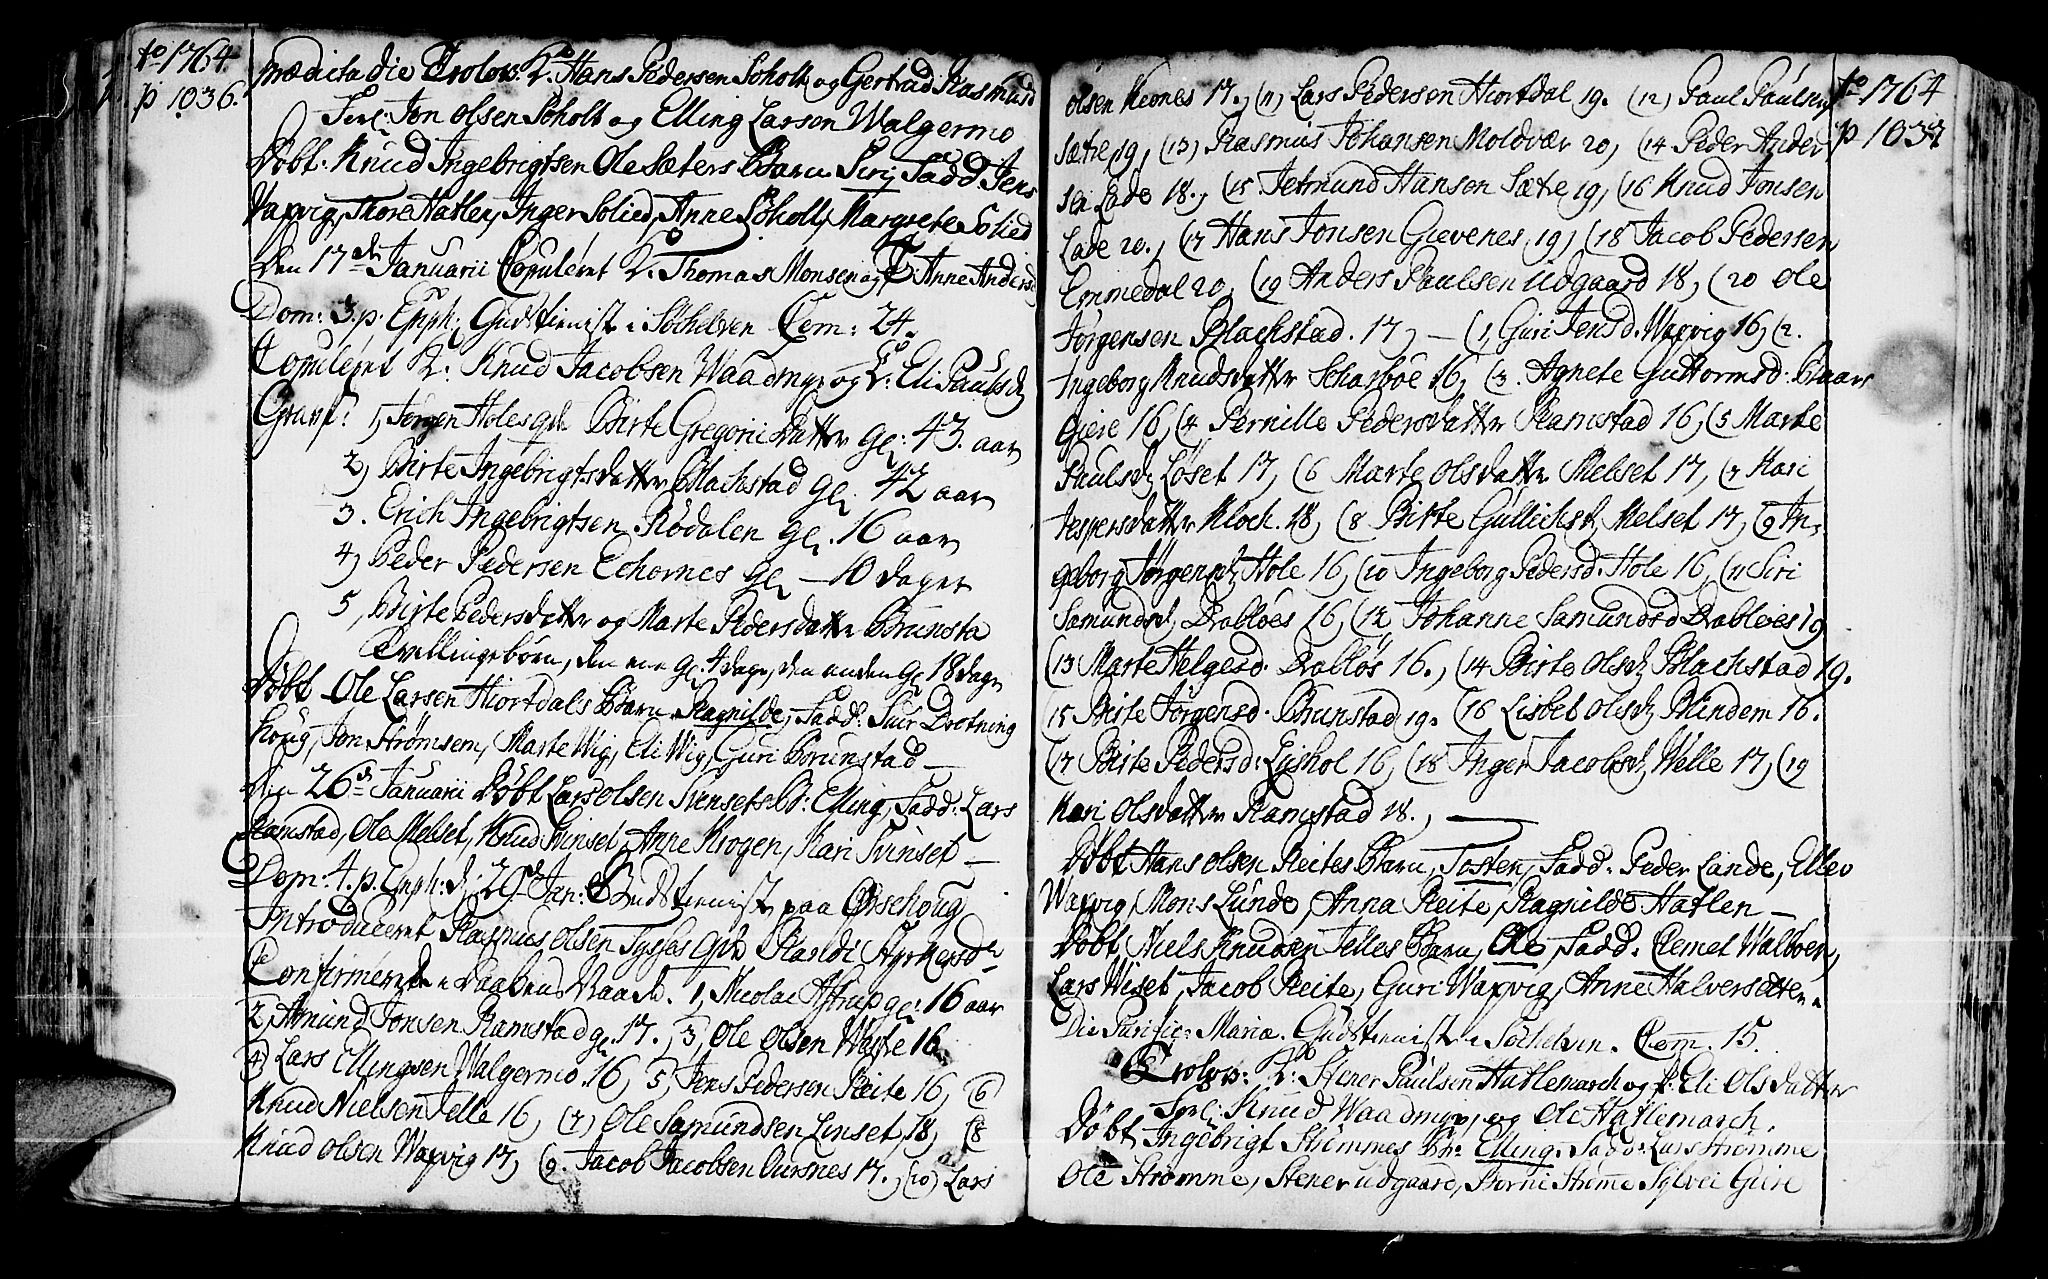 to 1764.
p 1036.
prædicta die Trolov: K. Hans Pedersen Soholt og Gertrud Rasmusd
Forl: Jon Olsen Soholt og Elling Larsen Walgermo
Döbt: Knud Ingebrigtsen Ole Sæters Barn Siri Fadd Jens
Waxvig, Thore Hatlen, Inger Solied, Anne Söholt, Margrete Solied
Den 17de Januarii Copuleret K. Thomas Monsen og P. Anne Andersd
Dom: 3. p. Epiph: Gudstienist i Söchelven Com: 24.
Copuleret K. Knud Jacobsen Waadmyr og P: Eli Paulsd
Gravf: 1, Jörgen Holes qv Birte Gregorii datter gl: 43. aar
2) Birte Ingebrigtsdatter Blachstad gl. 42 aar
3. Erich Ingebrigtsen Rödalen gl. 16 aar
4) Peder Pedersen Echornes gl — 10 dager
5, Birte Pedersdatter og Marte Pedersdatter Brunsta
Tvillingebörn, den ene gl. 4 dage, den anden gl 18 dage
Döbt Ole Larsen Hiortdals Barn Ragnilde, Fadd: Siur Drotning
houg, Jon Strömsem, Marte Wig, Eli Wig, Guri Brunstad —
Den 26de Januarii Döbt Lars Olsen Svensets B: Elling, Fadd: Lars
Ramstad, Ole Melset, Knud Svinset, Anne Krogen, Kari Svinset —
Dom: 4. p. Epiph: d. 29de Jan: Gudstienist paa Örschoug
Introduceret Rasmus Olsen Tysses qv Randi
Confirmerede 1, Nicolai Astrup gl: 16 aar
2, Amund Jonsen Ramstad gl. 17., 3, Ole Olsen Wasle 16
4) Lars Ellingsen Walgermo. 16, 5, Jens Pedersen Reite 16, (6)
Knud Nielsen Telle 16, (7) Ole Samundsen Linset, 18, (8
Knud Olsen Waxvig 17, (9. Jacob Jacobsen Aursnes 17., (10) Lars
to 1764
p 1037
Olsen Kiones 17., (11) Lars Pedersen Hiortdal 19. (12) Paul Paulsen
Sætre 19, (13) Rasmus Johansen Moldvær 20, (14 Peder Ander
sen Lade 18., (15 Jetmund Hansen Sætre 19, (16 Knud Jonsen
Lade 20., (17 Hans Jonsen Gievenes, 19) (18 Jacob Pedersen
Emmedal 20, (19 Anders Paulsen Udgaard 18, (20 Ole
Jörgensen Blachstad. 17, — (1, Guri Jensd. Waxvig 16, (2.
Ingeborg Knudsdatter Scharböe 16, (3. Agnete Guttormsd: Baars
Giere 16, (4 Pernille Pedersdatter Ramstad 16, (5 Marte
Paulsd Löset 17, (6 Marte Olsdatter Melset 17, (7 Kari
Jespersdatter Kloch. 18, (8 Birte Gullichsd Melset 17, (9 In-
geborg Jörgensd Hole 16, (10 Ingeborg Pedersd. Hole 16, (11 Siri
Samundsd Drablöes 16, (12 Johanne Samundsd Drablöes 19
(13 Marte Helgesd. Drablös 16., (14 Birte Olsd Blachstad 19.
(15 Birte Jörgensd. Brunstad 19. (16 Lisbet Olsd Blindem 16.
(17 Birte Pedersd. Ejshol 16, (18 Inger Jacobsd Welle 17, (19
Kari Olsdatter Ramstad 18., —
Döbt Hans Olsen Reites Barn, Tosten, Fadd: Peder Lande, Ellev
Waxvig, Mons Lunde, Anna Reite, Ragnilde Hatlen —
Döbt, Niels Knudsen Telles Barn, Ole, Fadd. Clemet Walboen,
Lars Wiset, Jacob Reite, Guri Waxvig, Anne Halversetter.
Die Purific: Mariæ. Gudstienist i Söchelven. Com. 15.
Trolov: K. Stener Paulsen Hatlemarch og P: Eli Olsdatter
Forl: Knud Waadmyr, og Ole Hatlemarch.
Döbt Ingebrigt Strömmes Bn: Elling. Fadd: Lars Strömme
Ole Strömme, Stener Udgaard, Berni Ströme Sylvei Giere